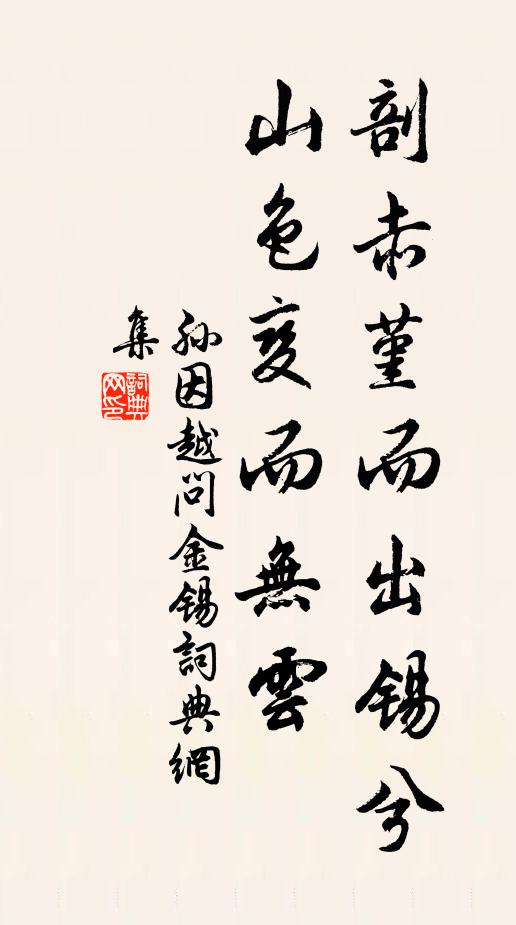 剖赤堇而出锡兮
山色变而無雲
孫因越问金锡詞典網
集
詞典
网印